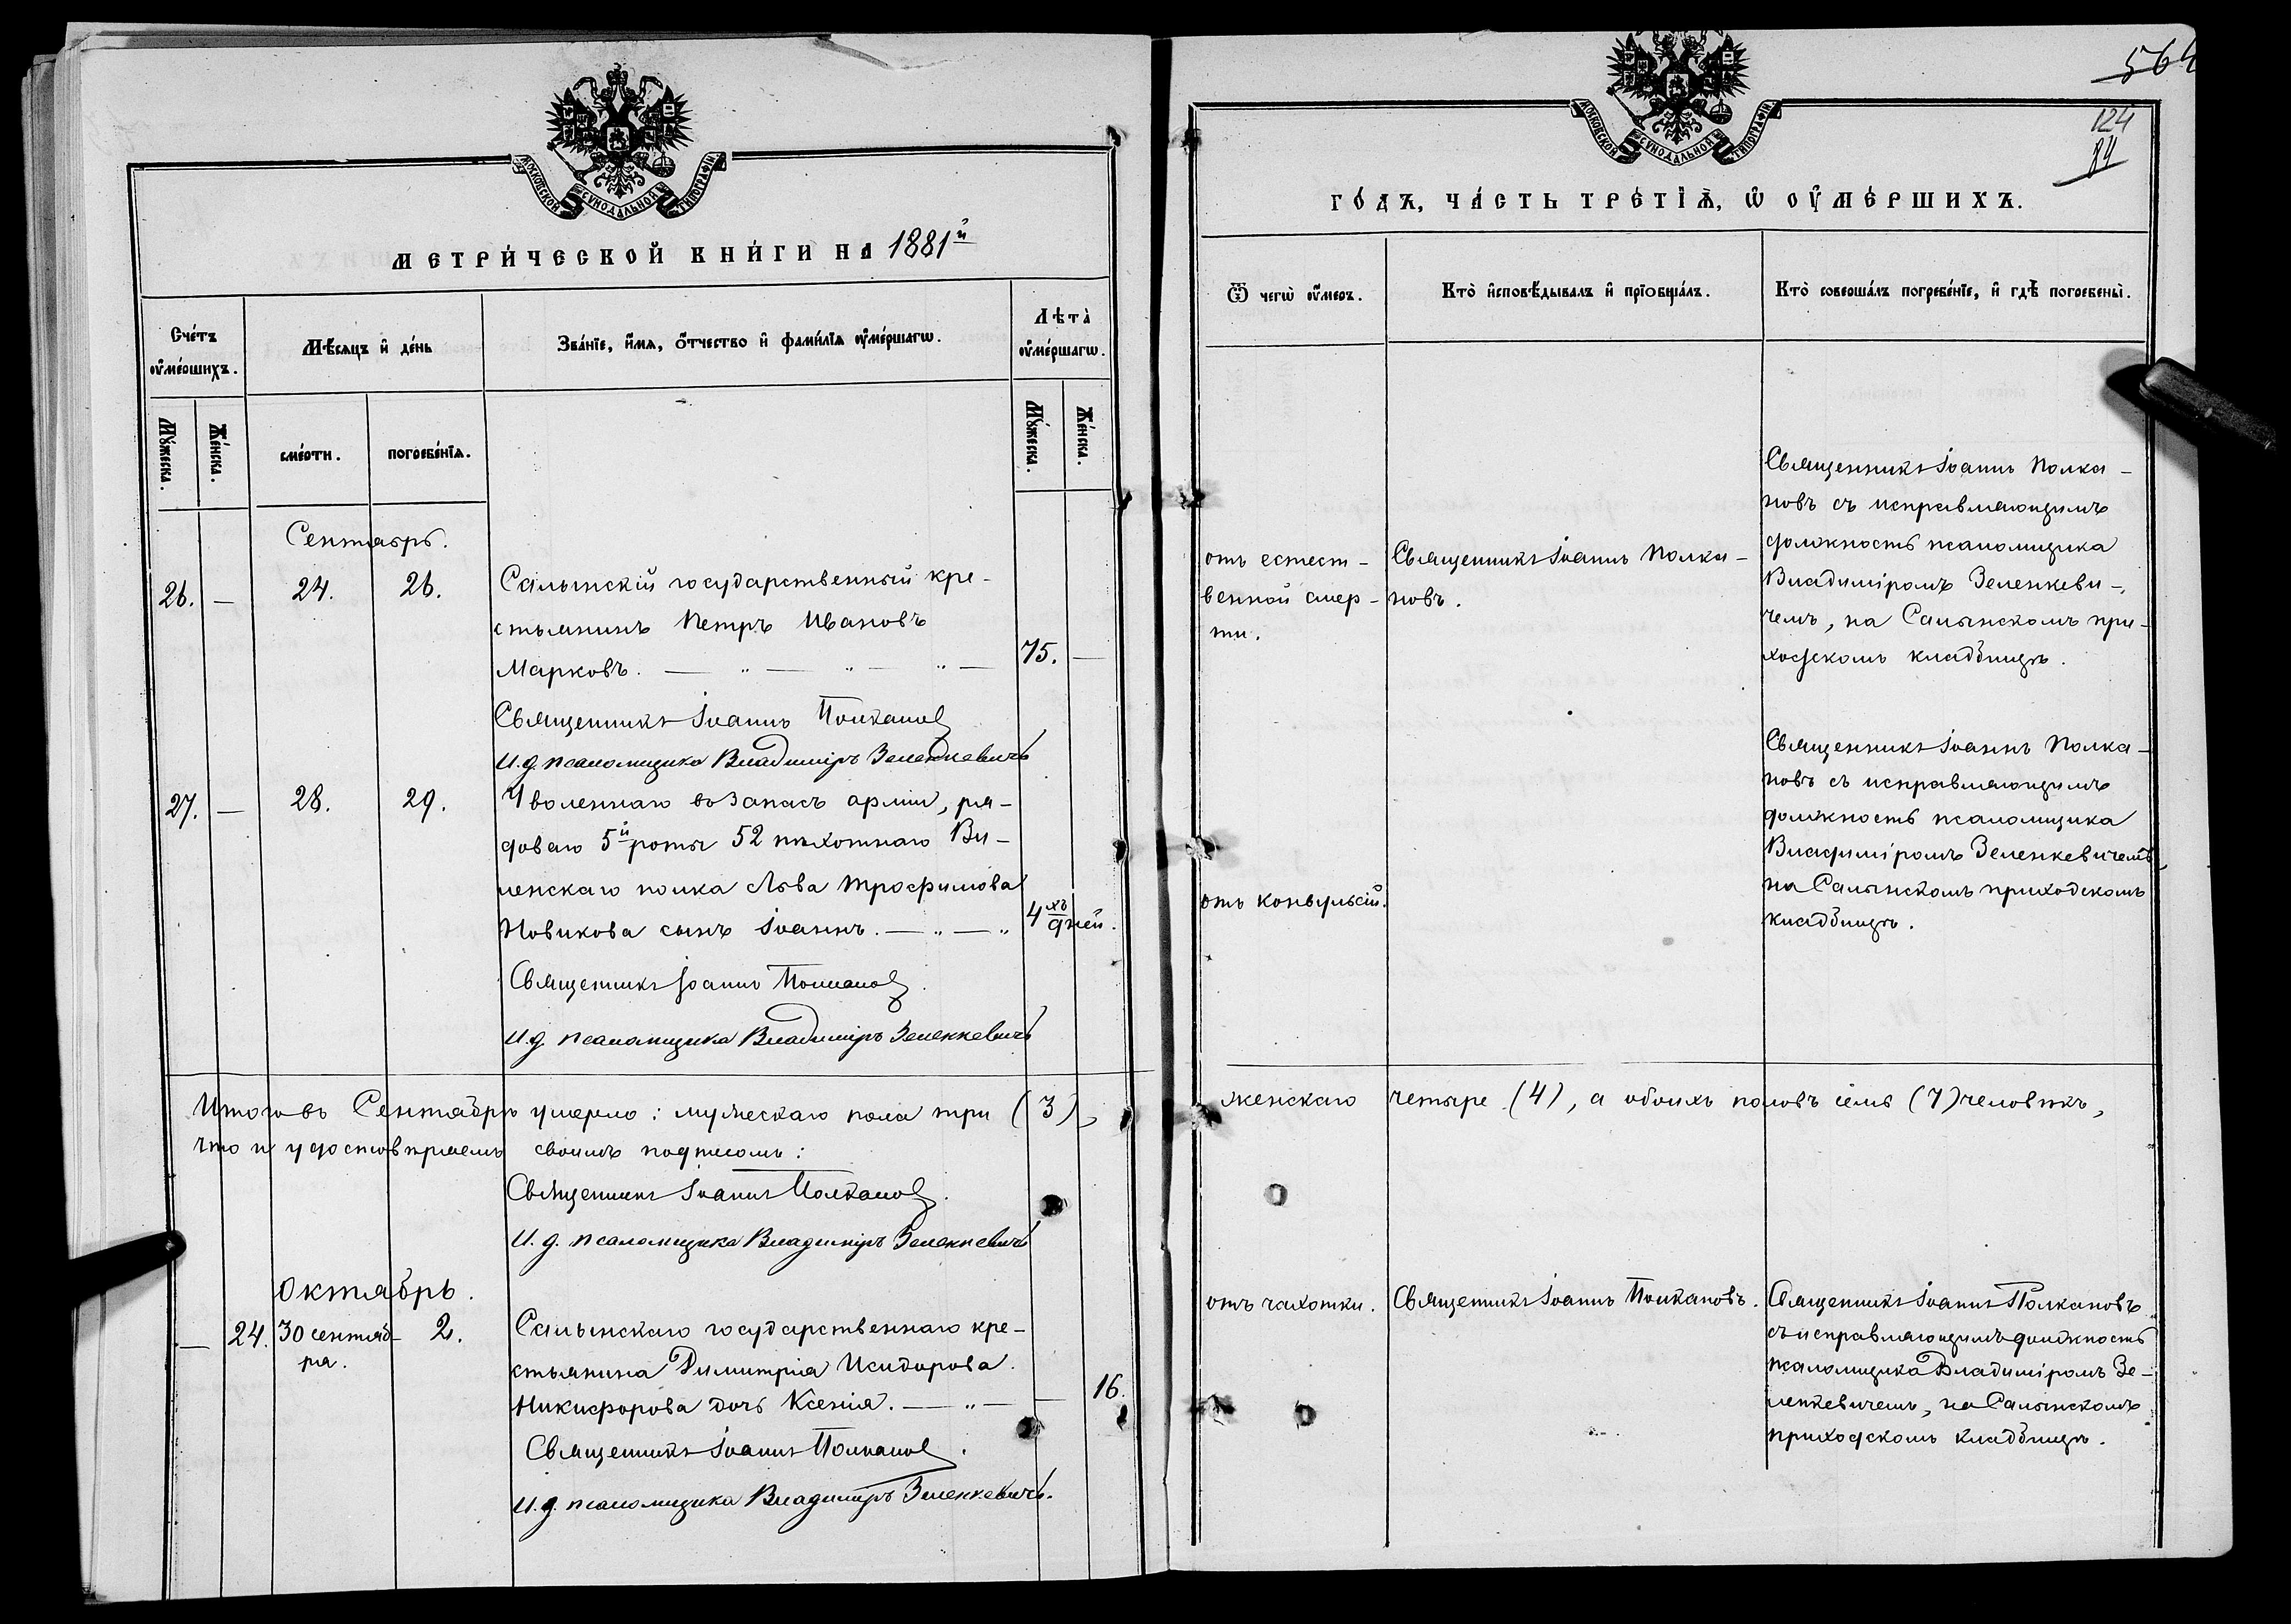 МОСКОВСКОЙ СѴНОДАЛЬНОЙ ТИПОГРАФІИ
МЕТРИ́ЧЕСКОЙ КНИ́ГИ НА 1881й
Сче́тъ оу҆ме́ршихъ.
Мѣ́сяцъ и҆ де́нь
Зва́нїе, и҆́мѧ, ѻ҆́тчество и҆ фами́лїѧ оу҆ме́ршагѡ.
Лѣта̀ оу҆ме́ршагѡ.
Мꙋ́жеска.
Же́нска.
сме́рти.
погребе́нїѧ.
Мꙋ́жеска.
Же́нска.
Сентябрь.
26. — 24. 26. Салынскій государственный кре-
стьянинъ Петръ Ивановъ
Марковъ. — „ — „ — „ — 75. —
Священникъ Іоаннъ Полкановъ
И. д. псаломщика Владиміръ Зеленкевичъ
27. — 28. 29. Уволеннаго въ запасъ арміи, ря-
доваго 5й роты 52 пѣхотнаго Ви-
ленскаго полка Льва Трофимова
Новикова сынъ Іоаннъ. — „ — „ 4хъ дней.
Священникъ Іоаннъ Полкановъ.
И. д. псаломщика Владиміръ Зеленкевичъ
Итого въ Сентябрѣ умерло: мужескаго пола три (3),
что и удостовѣряемъ своимъ подписомъ:
Священникъ Іоаннъ Полкановъ.
И. д. псаломщика Владиміръ Зеленкевичъ
Октябрь.
— 24. 30 сентяб- 2. Салынскаго государственнаго кре-
ря.
стьянина Димитрія Исидорова
Никифорова дочь Ксенія. — „ — — 16.
Священникъ Іоаннъ Полкановъ.
И. д. псаломщика Владиміръ Зеленкевичъ.
564
124
84
МОСКОВСКОЙ СѴНОДАЛЬНОЙ ТИПОГРАФІИ
ГО́ДЪ, ЧА́СТЬ ТРЕ́ТЇѦ, Ѡ҆ ОУ҆МЕ́РШИХЪ.
Ѿ чегѡ̀ оу҆́меръ.
Кто̀ и҆сповѣ́дывалъ и҆ прїобща́лъ.
Кто̀ соверша́лъ погребе́нїе, и҆ гдѣ̀ погребены̀.
Священникъ Іоаннъ Полка-
новъ съ исправляющимъ
должность псаломщика
Владиміромъ Зеленкеви-
чемъ, на Салынскомъ при-
ходскомъ кладбищѣ.
отъ естест-
венной смер-
ти.
Священникъ Іоаннъ Полка-
новъ.
Священникъ Іоаннъ Полка-
новъ съ исправляющимъ
должность псаломщика
Владиміромъ Зеленкевичемъ,
на Салынскомъ приходскомъ
кладбищѣ.
отъ конвульсій.
женскаго четыре (4), а обоихъ половъ семь (7) человѣкъ,
отъ чахотки.
Священникъ Іоаннъ Полкановъ.
Священникъ Іоаннъ Полкановъ
съ исправляющимъ должность
псаломщика Владиміромъ Зе-
ленкевичемъ, на Салынскомъ
приходскомъ кладбищѣ.